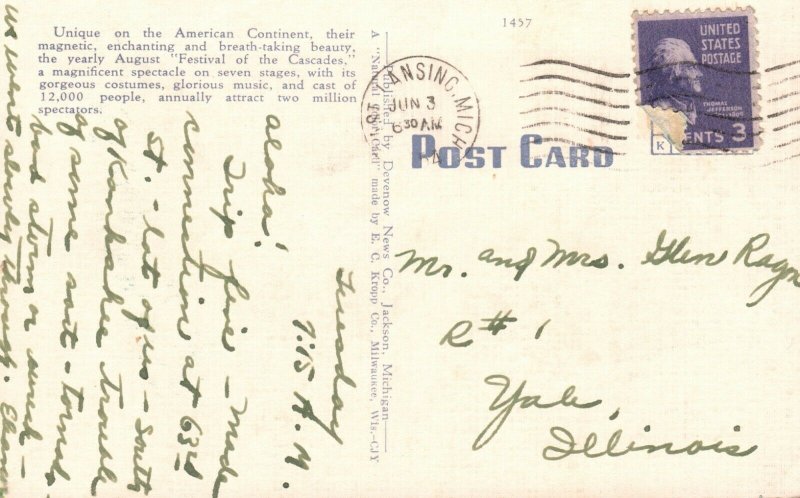 Unique on the American Continent, their
magnetic, enchanting and breath-taking beauty,
the yearly August "Festival of the Cascades,"
a magnificent spectacle on seven stages, with its
gorgeous costumes, glorious music, and cast of
12,000 people, annually attract two million
spectators.
1457
Published by Devenow News Co., Jackson, Michigan
A "Natural made by E. C. Kropp Co., Milwaukee, Wis.-CJY
LANSING, MICH
JUN 3
630 AM
UNITED
STATES
POSTAGE
THOMAS
JEFFERSON
CENTS 3
K
POST CARD
Tuesday
7:15 A.M.
Aloha!
Trip fine - Made
connection at 63rd
St. - lot of us - South
of Kankakee trouble
of some sort - 
bad storm or such -
we went slowly through.
Mr. and Mrs. Glen
R#1
Yale,
Illinois